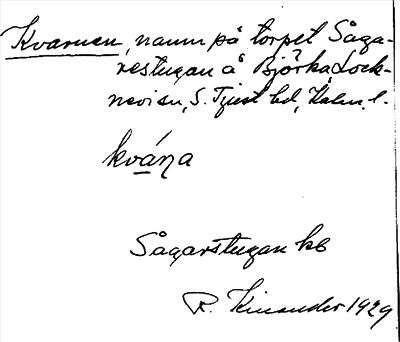 Kvarnen, namn på torpet Såga-
restugan å Björka, Lock-
nevi sn, S. Tjust hd, Kalm. l.
kváṇa
Sågarstugan kb
R. Kinander 1929